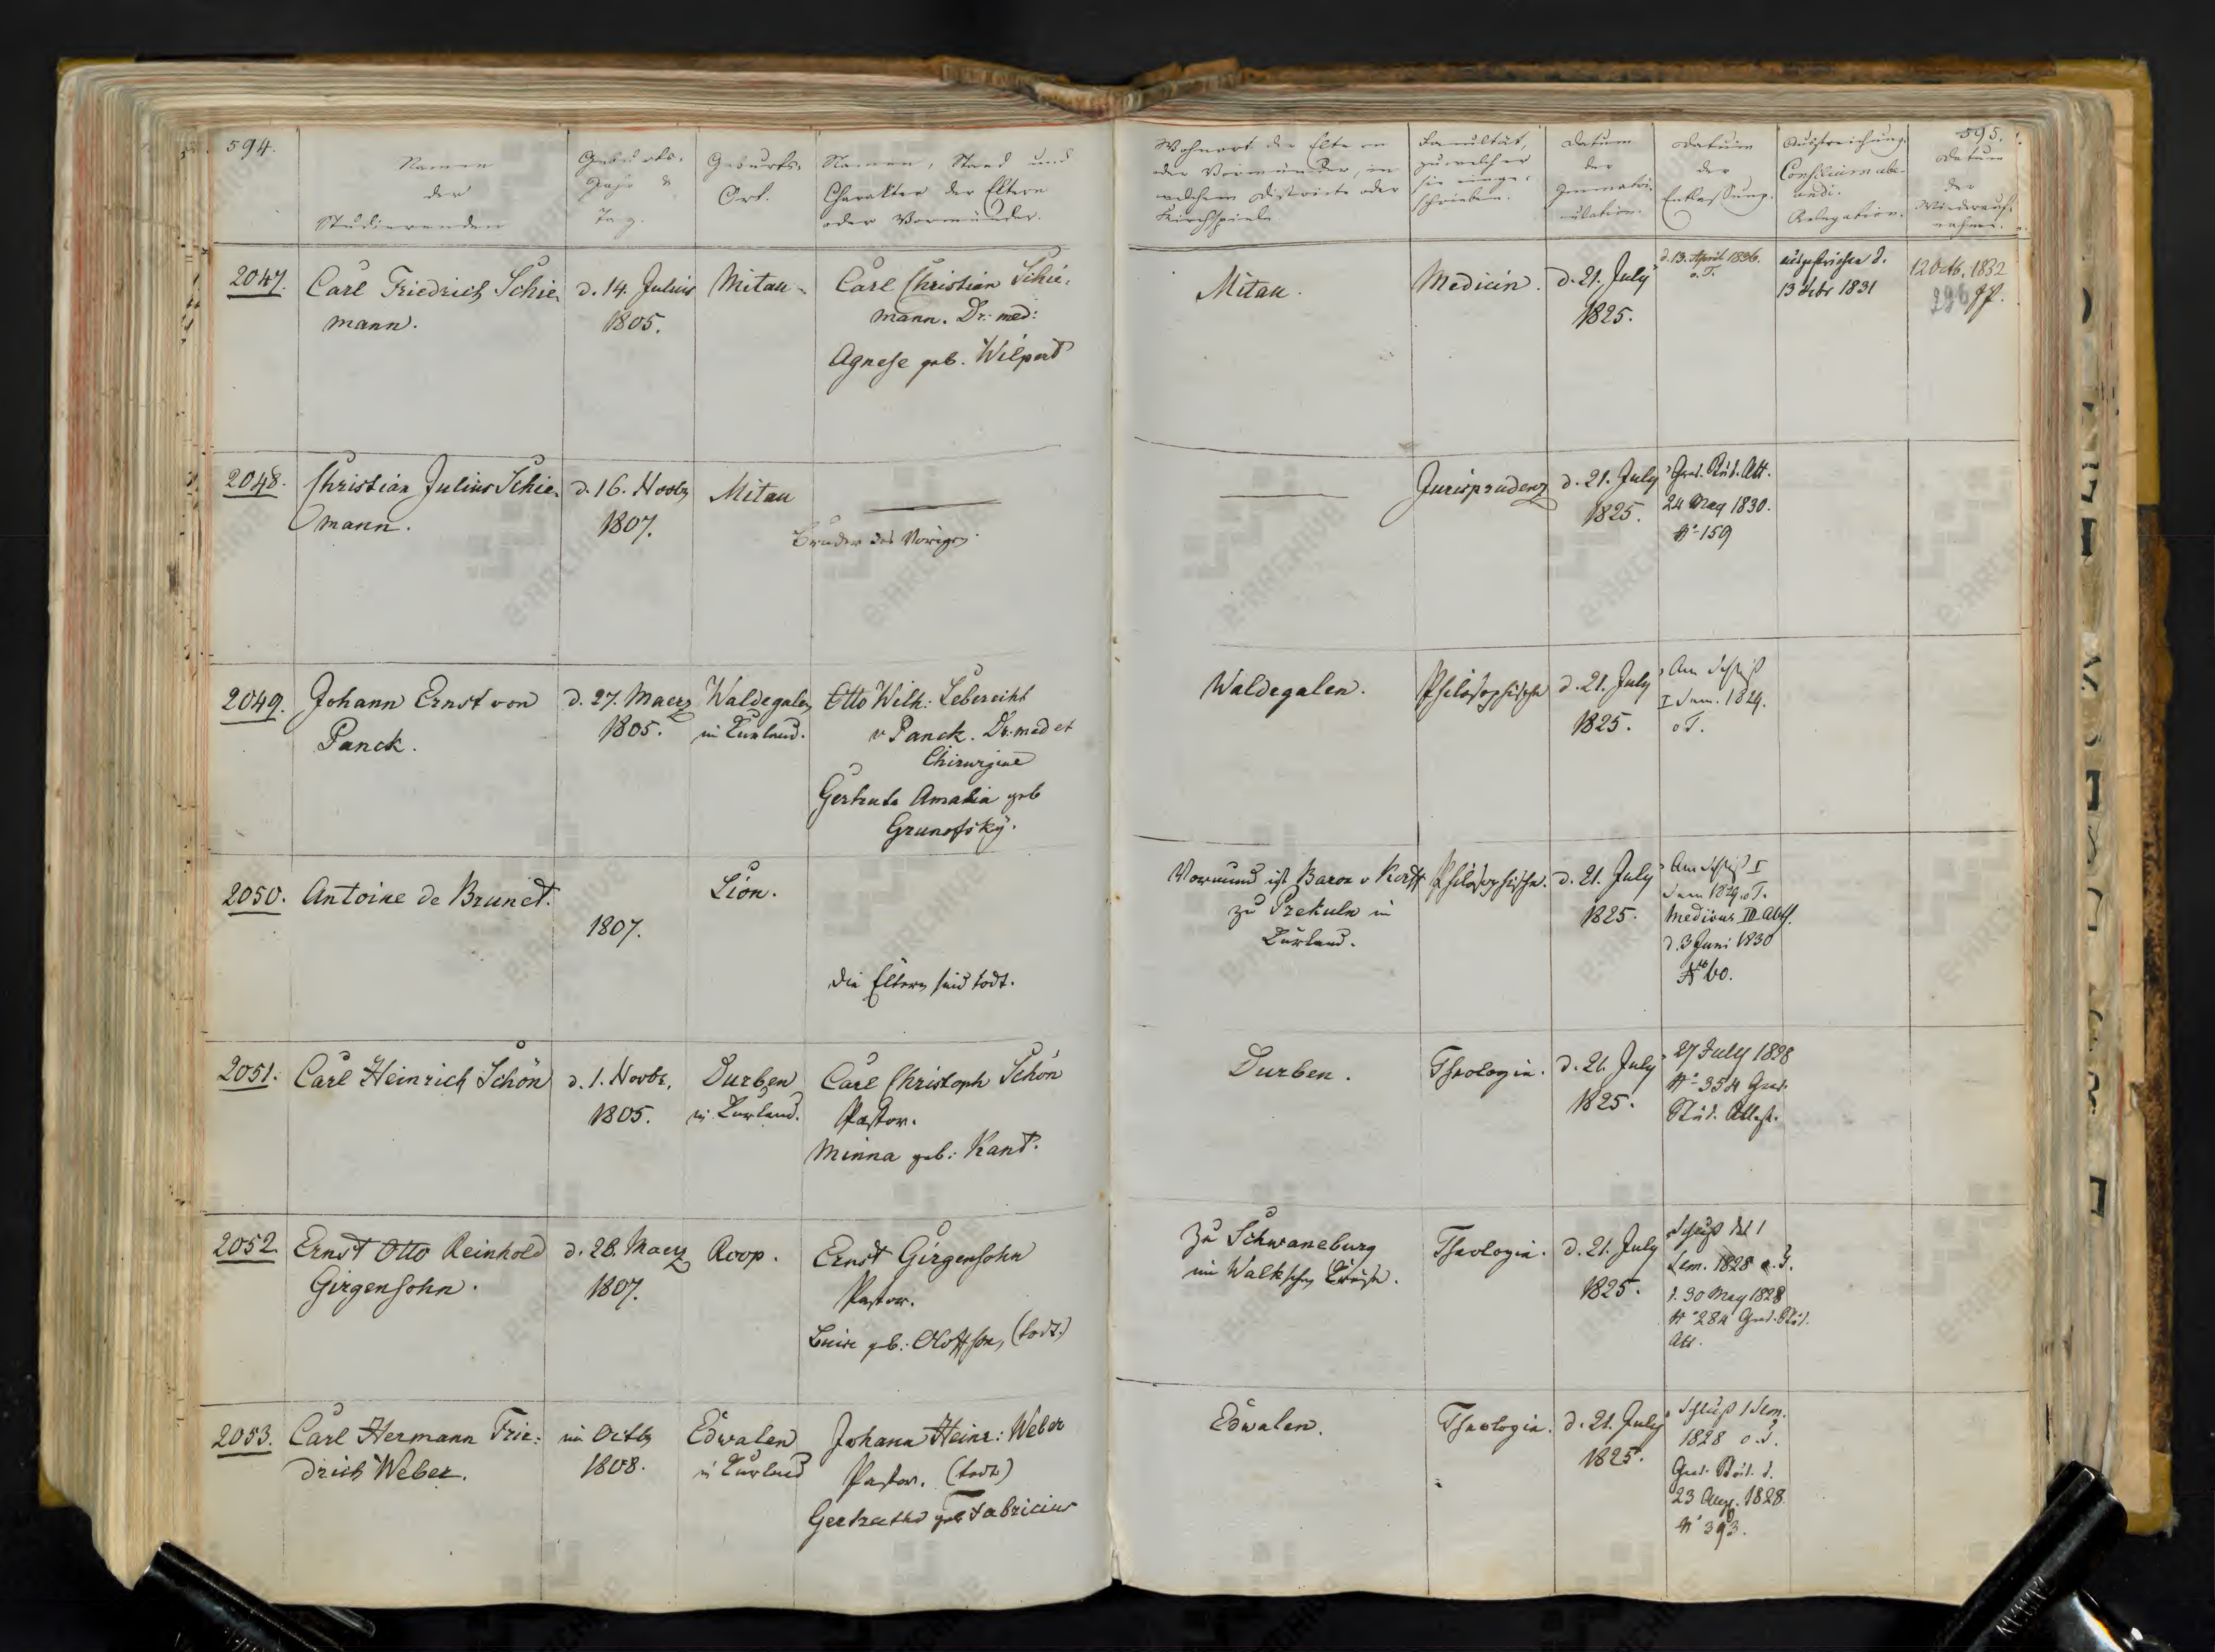 594.
Namen
der
Studierenden
Geburts-
Jahr &
Tag.
Geburts-
Ort.
Namen, Stand und
Charakter der Eltern
oder Vormünder.
Wohnort der Eltern
oder Vormünder, in
welchem Districte oder
Kirchspiele.
Facultät,
zu welcher
sie einge-
schrieben.
Datum
der
Immatri-
culation.
Datum
der
Entlassung.
Ausstreichung.
Consilium abe-
undi.
Relegation.
595.
Datum
der
Wiederauf-
nahme.
2047.
Carl Friedrich Schie-
mann.
d. 14. Julius
1805.
Mitau.
Carl Christian Schie-
mann. Dr. med:
Agnese geb. Wilpert
Mitau.
Medicin.
d. 21. July
1825.
d. 13. April 1836.
o. T.
ausgestrichen d.
13 Febr 1831
12 Octb. 1832
2048.
Christian Julius Schie-
mann.
d. 16. Novbr
1807.
Mitau
Bruder des Vorigen.
Jurisprudenz
d. 21. July
1825.
Grad. Stud. Att.
24 May 1830.
N° 159
2049.
Johann Ernst von
Panck.
d. 27. Maerz
1805.
Waldegalen
in Kurland.
Otto Wilh: Leberecht
v Panck. Dr. med et
Chirurgiae
Gertrude Amalia geb
Grunofsky.
Waldegalen.
Philosophische
d. 21. July
1825.
Am Schluß
I Sem. 1829.
o T.
2050.
Antoine de Brunet.
1807.
Lion.
die Eltern sind todt.
Vormund ist Baron v Korff
zu Prekuln in
Kurland.
Philosophische.
d. 21. July
1825.
Am Schluß I
Sem 1829 o. T.
Medicus III Abth.
d. 3 Juni 1830
N° 60.
2051.
Carl Heinrich Schön
d. 1. Novbr.
1805.
Durben
in Kurland.
Carl Christoph Schön
Pastor.
Minna geb: Kant.
Durben.
Theologie.
d. 21. July
1825.
27 July 1828
N° 354 Grad.
Stud. Attest.
2052.
Ernst Otto Reinhold
Girgensohn.
d. 28. Maerz
1807.
Roop.
Ernst Girgensohn
Pastor.
Luise geb: Oloffson, (todt.)
Zu Schwaneburg
im Walkschen Kreise.
Theologie.
d. 21. July
1825.
Schluß des I
Sem. 1828 o. T.
d. 30 May 1828
N° 284 Grad. Stud.
Att.
2053.
Carl Hermann Frie-
drich Weber.
im Octbr
1808.
Edwalen
in Kurland
Johann Heinr: Weber
Pastor. (todt)
Gertrude geb Fabricius
Edwalen.
Theologie.
d. 21. July
1825.
Schluß I Sem.
1828 o. T.
Grad. Stud. d.
23 Aug. 1828.
N° 393.